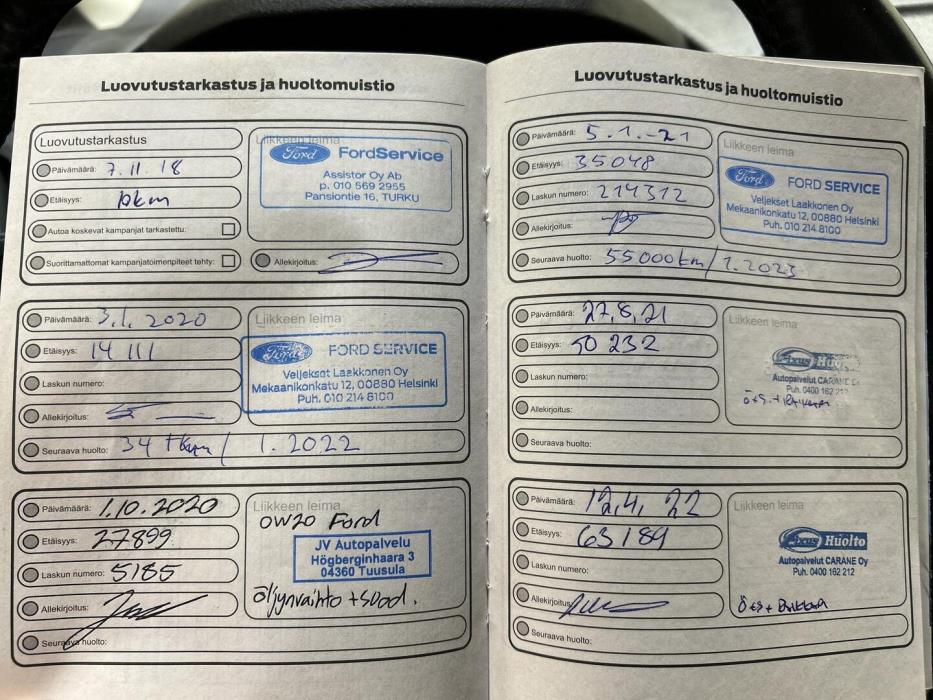 Luovutustarkastus ja huoltomuistio
Luovutustarkastus
Päivämäärä: 7.11.18
Etäisyys: km
Autoa koskevat kampanjat tarkastettu:
Suorittamattomat kampanjatoimenpiteet tehty:
Liikkeen leima
Ford FordService
Assistor Oy Ab
p. 010 569 2955
Pansiontie 16, TURKU
Allekirjoitus:
Päivämäärä: 3.1.2020
Etäisyys: 14 111
Laskun numero:
Allekirjoitus:
Liikkeen leima
Ford FORD SERVICE
Veljekset Laakkonen Oy
Mekaanikonkatu 12, 00880 Helsinki
Puh. 010 214 8100
Seuraava huolto: 34 tkm / 1.2022
Päivämäärä: 1.10.2020
Etäisyys: 27899
Laskun numero: 5185
Allekirjoitus:
Liikkeen leima
0W20 Ford
JV Autopalvelu
Högberginhaara 3
04360 Tuusula
öljynvaihto + suod.
Seuraava huolto:
Luovutustarkastus ja huoltomuistio
Päivämäärä: 5.1.-21
Etäisyys: 35048
Laskun numero: 214312
Allekirjoitus:
Liikkeen leima
Ford FORD SERVICE
Veljekset Laakkonen Oy
Mekaanikonkatu 12, 00880 Helsinki
Puh. 010 214 8100
Seuraava huolto: 55000km / 1.2023
Päivämäärä: 27.8.21
Etäisyys: 50 232
Laskun numero:
Allekirjoitus:
Liikkeen leima
Fixus Huolto
Autopalvelut CARANE Oy
Puh. 0400 162 212
Seuraava huolto:
Päivämäärä: 12.4. 22
Etäisyys: 63189
Laskun numero:
Allekirjoitus:
Liikkeen leima
Fixus Huolto
Autopalvelut CARANE Oy
Puh. 0400 162 212
Ö+S+
Seuraava huolto: